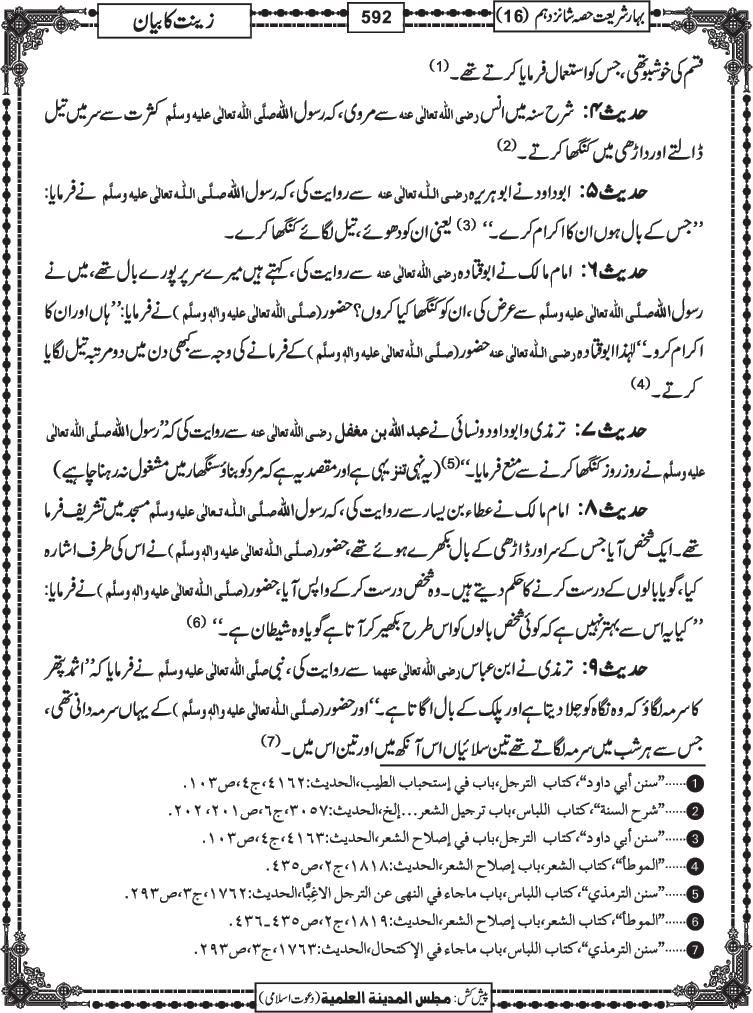 بہارِ شریعت حصہ شانزدہم (16)
592
زینت کا بیان
قسم کی خوشبو تھی، جس کو استعمال فرمایا کرتے تھے۔ (1)
حدیث ۴: شرح سنہ میں انس رضی اللہ تعالٰی عنہ سے مروی، کہ رسول اللہ صلَّی اللہ تعالٰی علیہ وسلَّم کثرت سے سر میں تیل
ڈالتے اور داڑھی میں کنگھا کرتے۔ (2)
حدیث ۵: ابوداود نے ابوہریرہ رضی اللہ تعالٰی عنہ سے روایت کی، کہ رسول اللہ صلَّی اللہ تعالٰی علیہ وسلَّم نے فرمایا:
’’جس کے بال ہوں ان کا اکرام کرے۔‘‘ (3) یعنی ان کو دھوئے، تیل لگائے کنگھا کرے۔
حدیث ۶: امام مالک نے ابوقتادہ رضی اللہ تعالٰی عنہ سے روایت کی، کہتے ہیں میرے سر پر پورے بال تھے، میں نے
رسول اللہ صلَّی اللہ تعالٰی علیہ وسلَّم سے عرض کی، ان کو کنگھا کیا کروں؟ حضور (صلَّی اللہ تعالٰی علیہ واٰلہٖ وسلَّم) نے فرمایا: ’’ہاں اور ان کا
اکرام کرو۔‘‘ لہٰذا ابوقتادہ رضی اللہ تعالٰی عنہ حضور (صلَّی اللہ تعالٰی علیہ واٰلہٖ وسلَّم) کے فرمانے کی وجہ سے کبھی دن میں دو مرتبہ تیل لگایا
کرتے۔ (4)
حدیث ۷: ترمذی و ابوداود و نسائی نے عبد اللہ بن مغفل رضی اللہ تعالٰی عنہ سے روایت کی کہ ’’رسول اللہ صلَّی اللہ تعالٰی
علیہ وسلَّم نے روز روز کنگھا کرنے سے منع فرمایا۔‘‘ (5) (یہ نہی تنزیہی ہے اور مقصد یہ ہے کہ مرد کو بناؤ سنگھار میں مشغول نہ رہنا چاہیے)
حدیث ۸: امام مالک نے عطاء بن یسار سے روایت کی، کہ رسول اللہ صلَّی اللہ تعالٰی علیہ وسلَّم مسجد میں تشریف فرما
تھے۔ ایک شخص آیا جس کے سر اور ڈاڑھی کے بال بکھرے ہوئے تھے، حضور (صلَّی اللہ تعالٰی علیہ واٰلہٖ وسلَّم) نے اس کی طرف اشارہ
کیا، گویا بالوں کے درست کرنے کا حکم دیتے ہیں۔ وہ شخص درست کرکے واپس آیا، حضور (صلَّی اللہ تعالٰی علیہ واٰلہٖ وسلَّم) نے فرمایا:
’’کیا یہ اس سے بہتر نہیں ہے کہ کوئی شخص بالوں کو اس طرح بکھیر کر آتا ہے گویا وہ شیطان ہے۔‘‘ (6)
حدیث ۹: ترمذی نے ابن عباس رضی اللہ تعالٰی عنہما سے روایت کی، نبی صلَّی اللہ تعالٰی علیہ وسلَّم نے فرمایا کہ ’’اثمد پتھر
کا سرمہ لگاؤ کہ وہ نگاہ کو جلا دیتا ہے اور پلک کے بال اگاتا ہے۔‘‘ اور حضور (صلَّی اللہ تعالٰی علیہ واٰلہٖ وسلَّم) کے یہاں سرمہ دانی تھی،
جس سے ہر شب میں سرمہ لگاتے تھے تین سلائیاں اس آنکھ میں اور تین اس میں۔ (7)
1 ......’’سنن أبي داود‘‘، کتاب الترجل، باب في إستحباب الطيب، الحديث: ٤١٦٢، ج٤، ص١٠٣.
2 ......’’شرح السنة‘‘، کتاب اللباس، باب ترجيل الشعر...إلخ، الحديث: ٣٠٥٧، ج٦، ص٢٠١، ٢٠٢.
3 ......’’سنن أبي داود‘‘، کتاب الترجل، باب في إصلاح الشعر، الحديث: ٤١٦٣، ج٤، ص١٠٣.
4 ......’’الموطأ‘‘، کتاب الشعر، باب إصلاح الشعر، الحديث: ١٨١٨، ج٢، ص٤٣٥.
5 ......’’سنن الترمذي‘‘، کتاب اللباس، باب ماجاء في النهى عن الترجل الاغِبًّا، الحديث: ١٧٦٢، ج٣، ص٢٩٣.
6 ......’’الموطأ‘‘، کتاب الشعر، باب إصلاح الشعر، الحديث: ١٨١٩، ج٢، ص٤٣٥ـ٤٣٦.
7 ......’’سنن الترمذي‘‘، کتاب اللباس، باب ماجاء في الإکتحال، الحديث: ١٧٦٣، ج٣، ص٢٩٣.
پیش کش: مجلس المدينة العلمية (دعوتِ اسلامی)